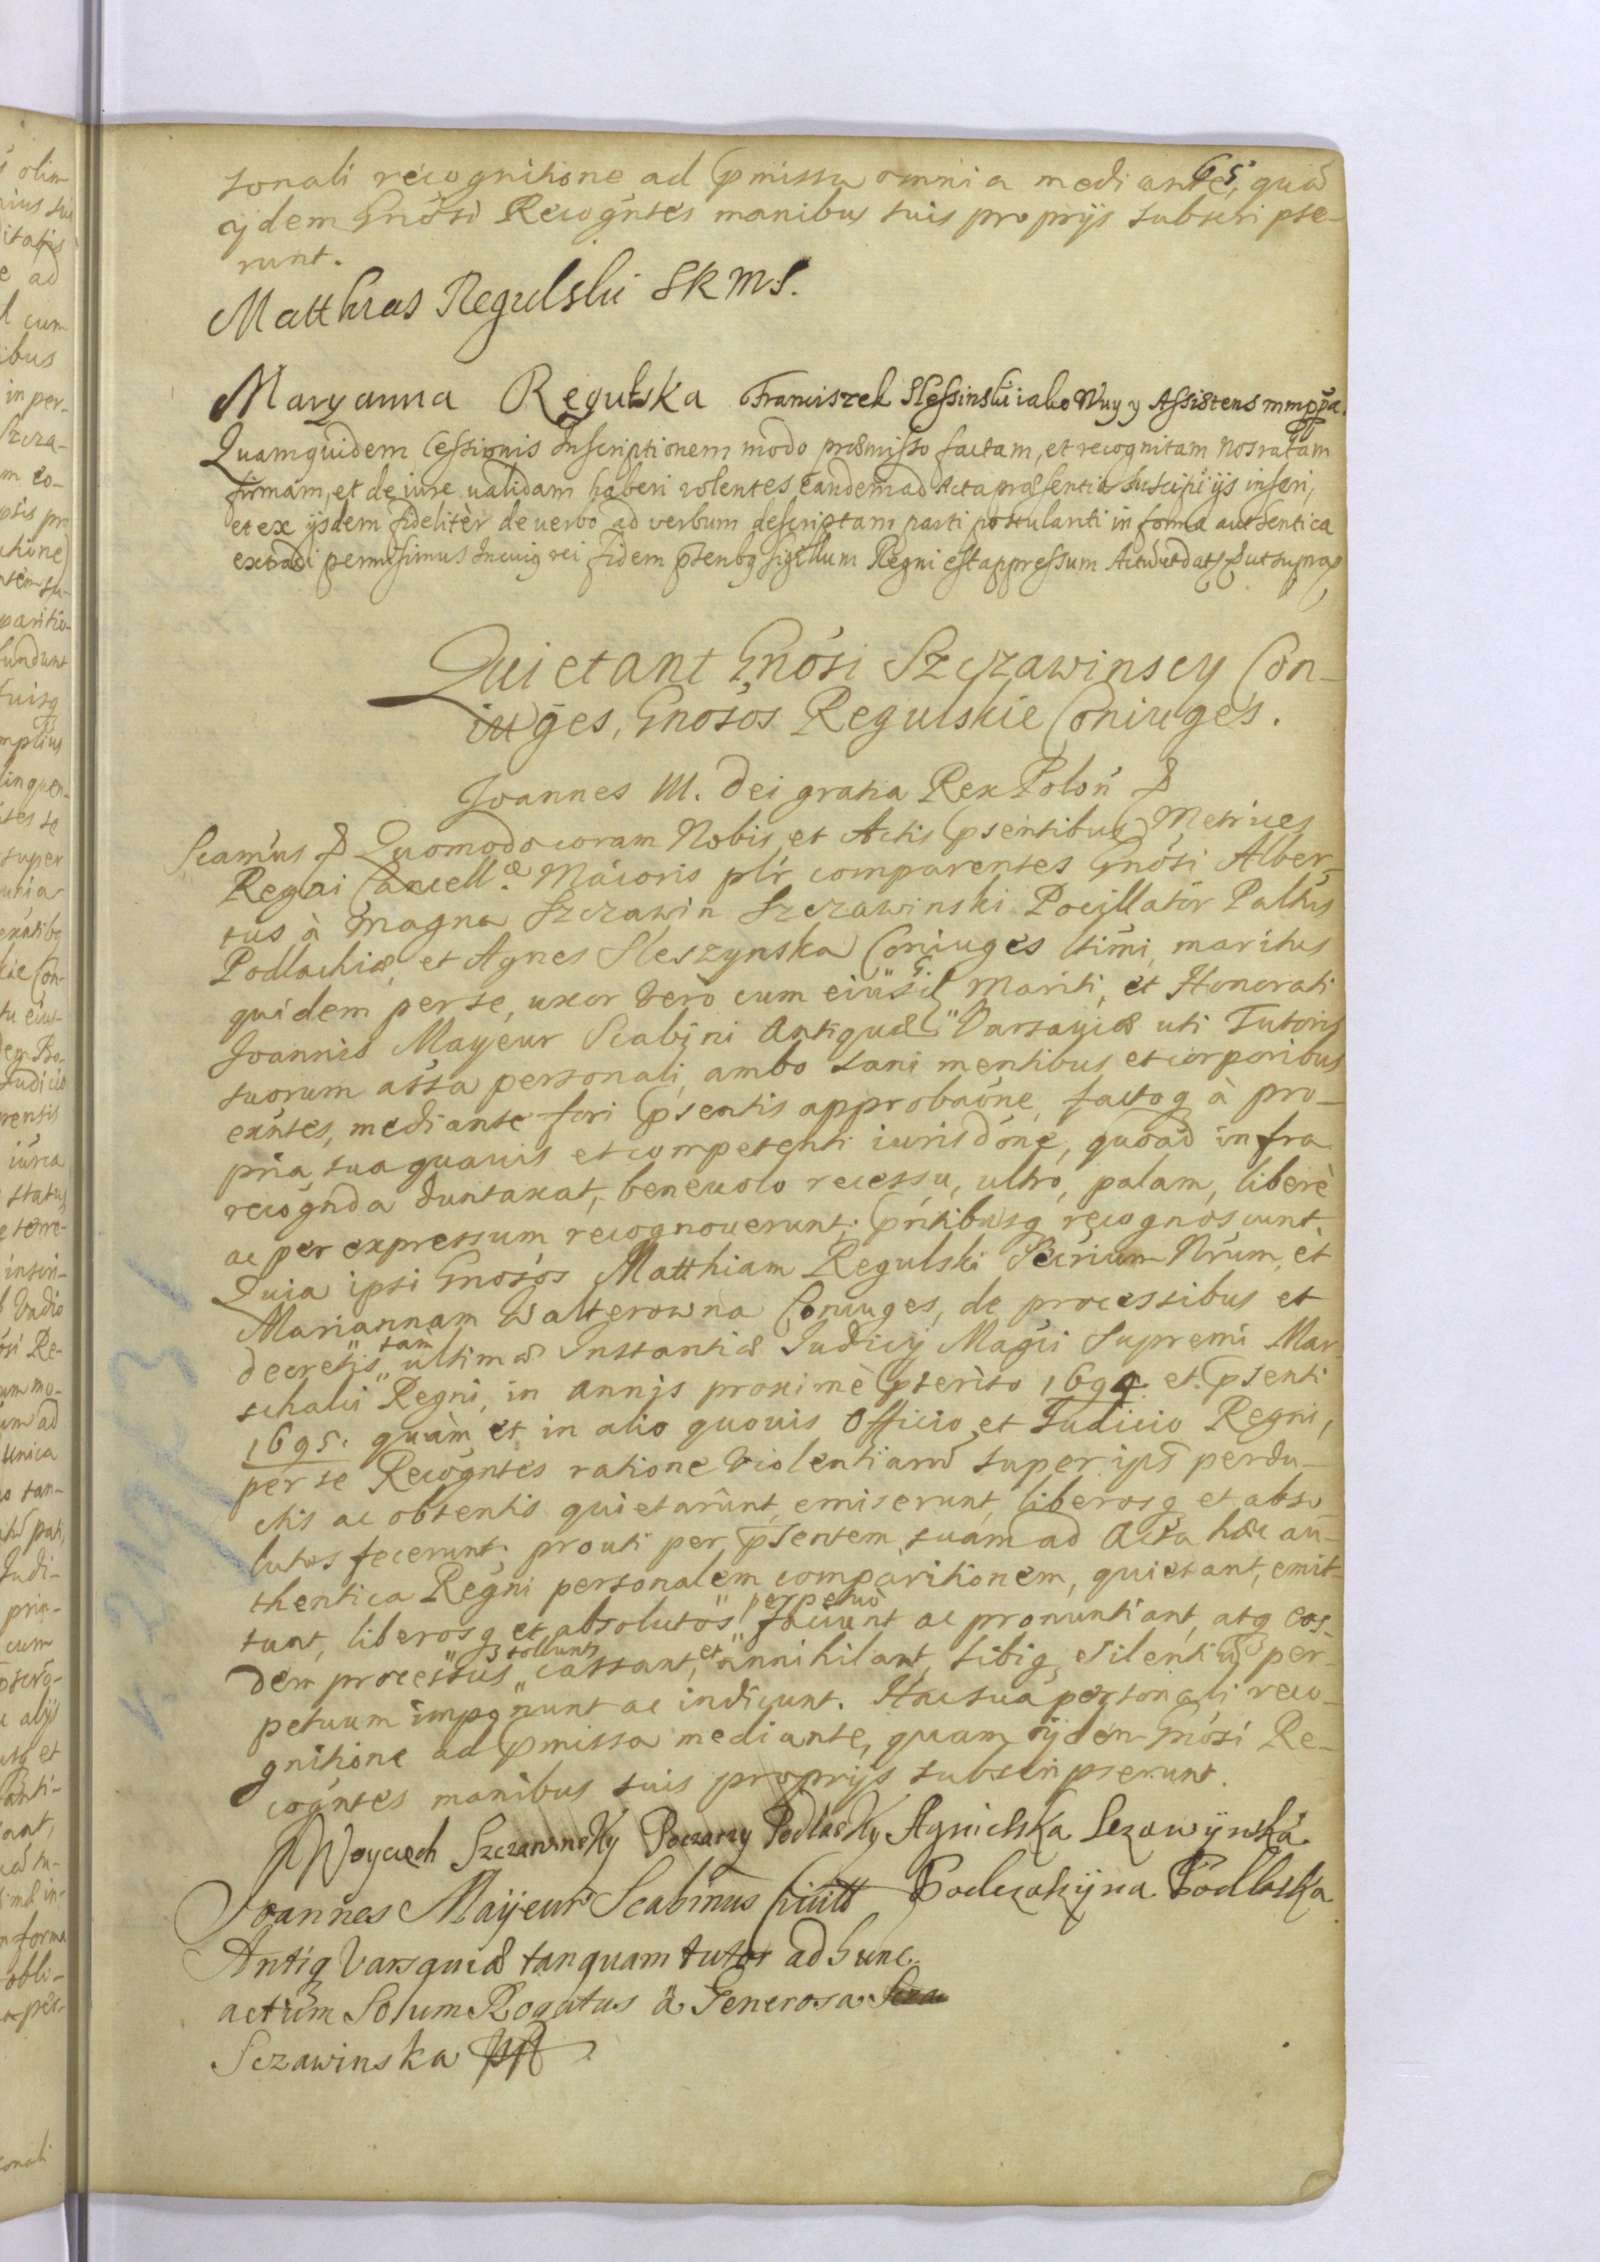 65
sonali recognitione ad pmissa omnia mediante, quā
ijdem Gnősi Recogntes manibus suis proprijs subscripse-
runt.
Matthias Regulski SKMS.
Maryanna Regulska Franciszek Slessinski iako Wuy y Assistens mmppa.
Quamquidem Cessionis Inscriptionem modo præmisso factam, et recognitam nos ratam
firmam, et de iure validam haberi volentes eandem ad Acta præsentia suscipi ijs inseri,
et ex ijsdem fideliter de verbo ad verbum descriptam parti postulanti in forma authentica
extradi permisimus In cuiq rei fidem pñtenbq sigillum Regni est appressum Act ut supra
Quietant Gnősi Szczawinscy Con-
iuges, Gnősos Regulskie Coniuges.
Joannes III. Dei gratia Rex Poloń &
Scamus & Quomodo coram Nobis et Actis psentibus Metrices
Regni Cancellæ Maioris plr comparentes Gnősi Alber-
tus à Magna Szczawin Szczawinski Pocillator Palűs
Podlachiæ, et Agnes Sleszynska Coniuges ltimi, maritus
quidem per se, uxor vero cum eiusd G. Mariti, et Honorati
Joannis Mayeur Scabini Antiquæ Varsaviæ uti Tutoris
suorum assa personali, ambo sani mentibus et corporibus
exntes, mediante fori psentis approbaőne, factoq à pro-
pria sua quavis et competenti iurisdőne, quoad infra
recognda duntaxat, benevolo recessu, ultro, palam, liberè
ac per expressum recognoverunt; pntibusq recognoscunt.
Quia ipsi Gnősos Matthiam Regulski Secrium Nrum, et
Mariannam Walterowna Coniuges, de processibus et
decretis tam ultimæ Instantiæ Iudicij Magci Supremi Mar-
schalci Regni, in annis proxime pterito 1694. et psenti
1695. quàm et in alio quovis Officio et Iudicio Regni,
per se Recogntes ratione violentiarū super ips perdu-
ctis ac obtentis quietarunt, emiserunt, liberosq et abso-
lutos fecerunt; prouti per psentem suam ad Acta hæc au-
thentica Regni personalem comparitionem, quietant, emit-
tunt, liberosq et absolutos perpetuò faciunt ac pronuntiant, atq eos-
dem processus tollunt, cassant, et annihilant, sibiq silentiū per-
petuum imponunt ac indicunt. Hac sua personali reco-
gnitione ad pmissa mediante, quam ijdem Gnősi Re-
cogntes manibus suis proprijs subscripserunt.
Woyciech Szczawinsky Poczaszy Podlasky Agnieszka Sczawÿnska
Joannes Maÿeur Scabinus Civitt Podczaszÿna Podlaska
Antiq Varsaviæ tanquam tutor ad hunc
actum Solum Rogatus à Generosa
Sczawinska